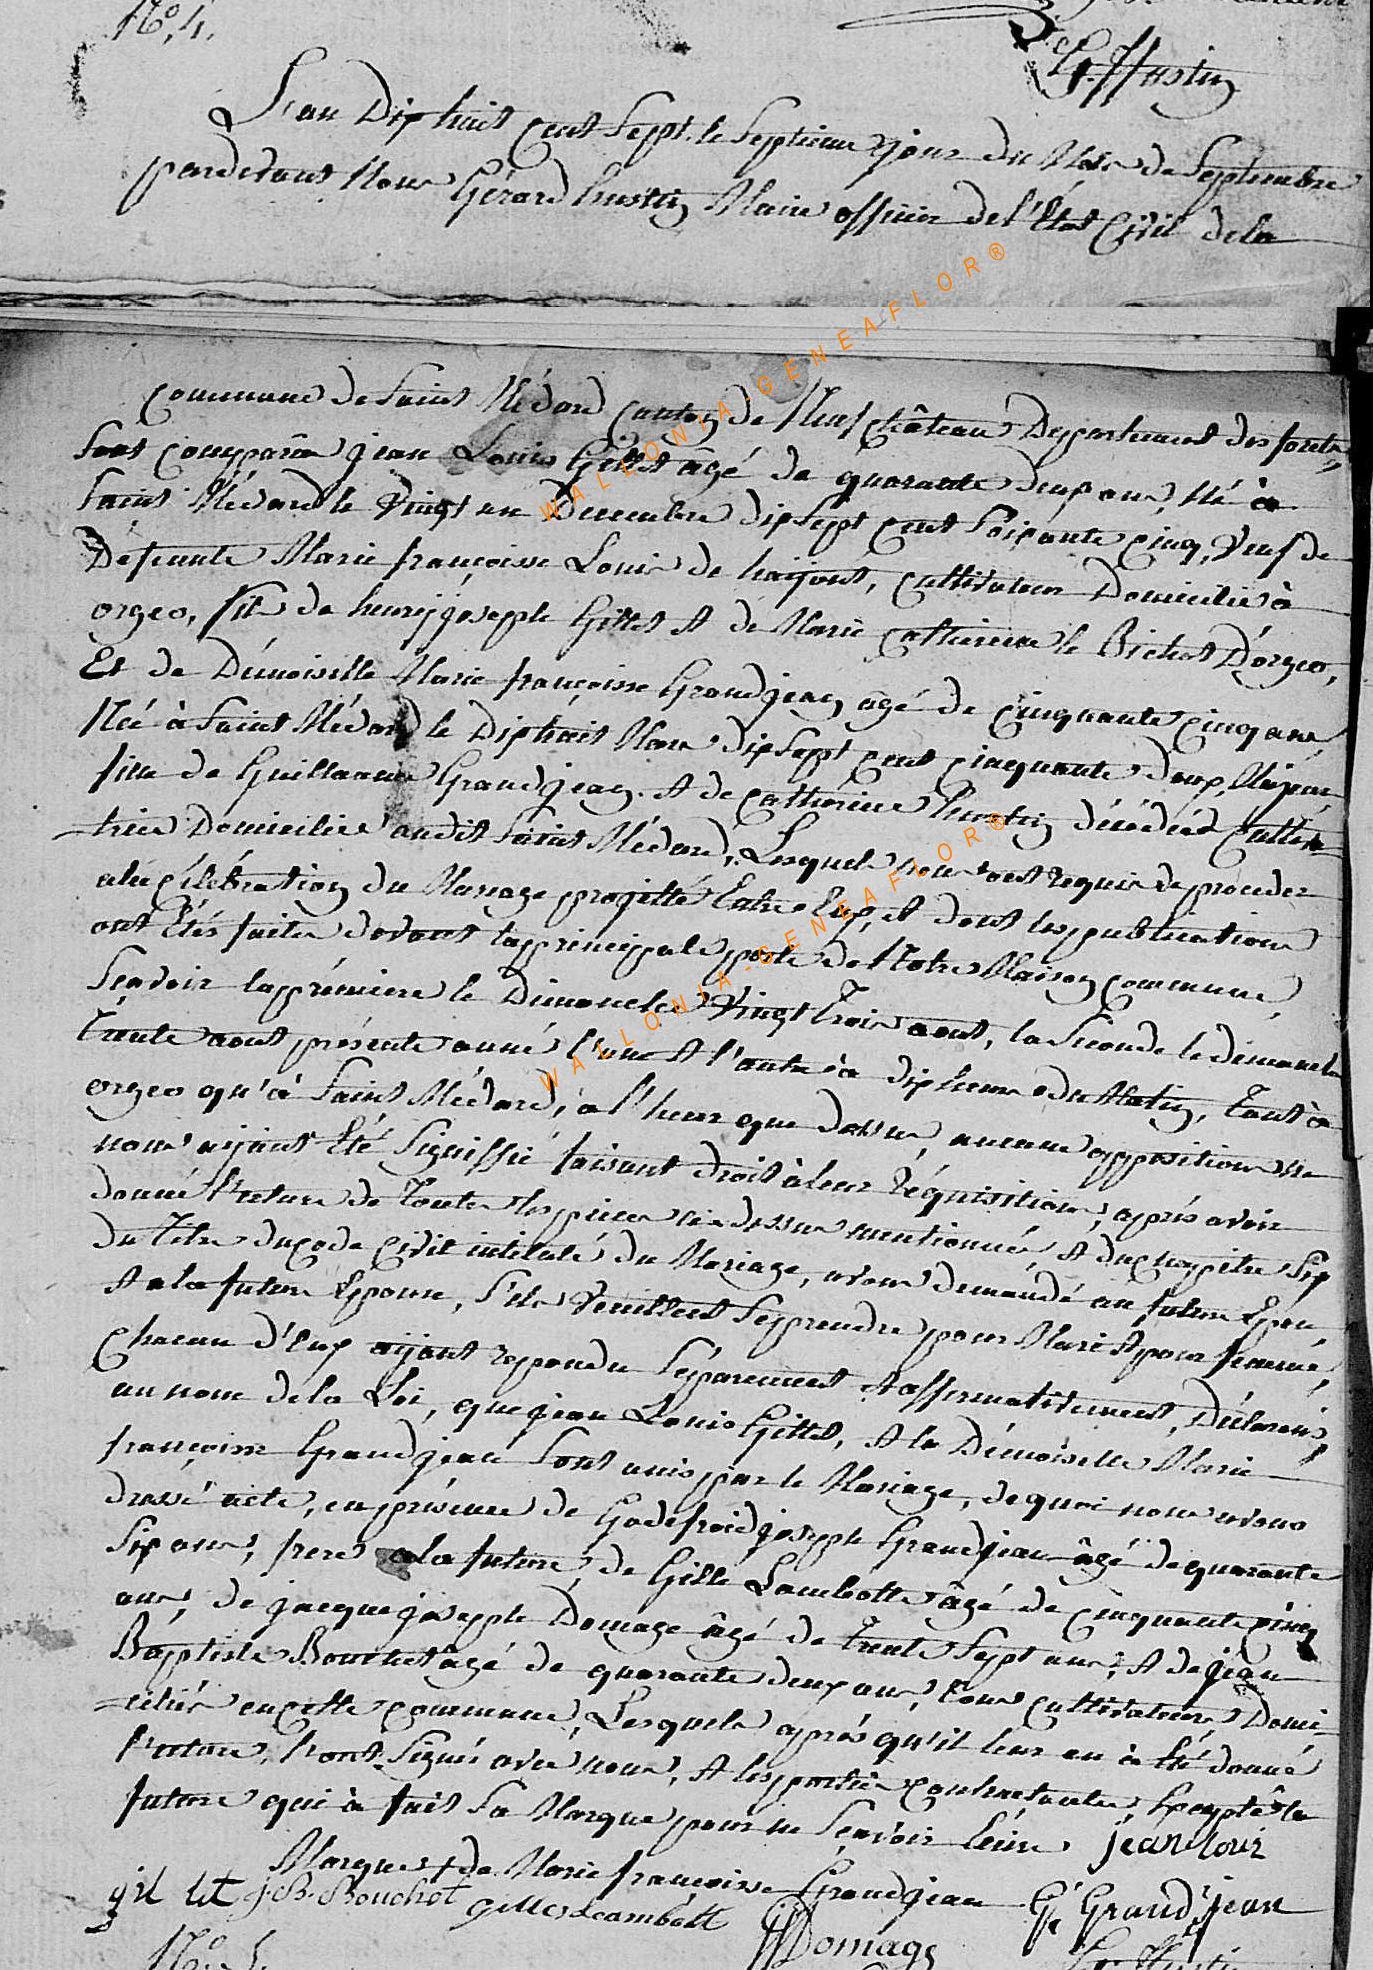 N.º 4.
G. Hustin
L'an Dixhuit cent Sept. le Septieme jour du Mois de Septembre
pardevant Nous Gérard hustin Maire officier de l'État Civil dela
Commune de Saint Médard canton de Neufchâteau Departement des forets
Sont comparus jean Louis Gillet âgé de quarante deux ans, Né à
Saint Médard le Vingt un Decembre dixSept cent Soixante cinq, Veuf de
Défunte Marie françoisse Louis de haijont, cultivateur Domicilié à
orgeo, fils de henry joseph Gillet et de Marie catherine le Bichot D'orgeo,
Et de Démoiselle Marie françoisse Grandjean agé de cinquante cinq ans,
Née à Saint Médard le Dixhuit Mars dixSept cent cinquante deux, Majeur
fille de Guillaume Grandjean. et de catherine hustin décédées cultiva-
trice Domiciliée audit Saint Médard, Lesquels nous ont requis de proceder
ala célébration du Mariage projetté Entre Eux, et dont les publications
ont Étés faites devant la principale porte de Notre Maison commune,
Sçavoir la prémiere le Dimanche Vingt Trois aout, la Seconde le dimanche
Trente aout présente année l'une et l'autre à dix heures du Matin, Tant à
orgeo qu'à Saint Médard, a l'heur que dessus, aucune opposition ne
nous aijant Été Signiffié faisant droit à leur réquisition, aprés avoir
donné lecture de Toutes les pieces ci dessus mentionnée, et du chapitre Six
du Titre du code civil intitulé du Mariage, avons demandé au futur Epoux,
et a la future Epouse, S'ils Veuillent Se prendre pour Mari et pour femme,
Chacun d'Eux aijant repondu Séparement et affirmativement, Déclarons
au nom de la Loi, que jean Louis Gillet, et la Démoiselle Marie
françoisse Grandjean Sont unis par le Mariage, de quoi nous avons
dressé acte, en présence de Godefroid joseph Grandjean âgé de quarante
Six ans, frere a la future, de Gille Lambotte âgé de cinquante cinq
ans, de jacque joseph Domage âgé de trente Sept ans, et de jean
Baptiste Bouchot agé de quarante deux ans, tous cultivateurs Domi-
-ciliés en cette commune, Lesquels aprés qu'il leur en à Été donné
lecture, l'ont Signés avec nous, et les parties contractantes, Excepté la
future qui à fait Sa Marque pour ne Sçavoir Ecrire jean louis
Marque + de Marie françoisse Grandjean G. Grandjean
gil let J. B. Bouchot gille Lambott JJ Domage
N.º 5. G. Hustin
WALLONIA-GENEAFLOR®
WALLONIA-GENEAFLOR®